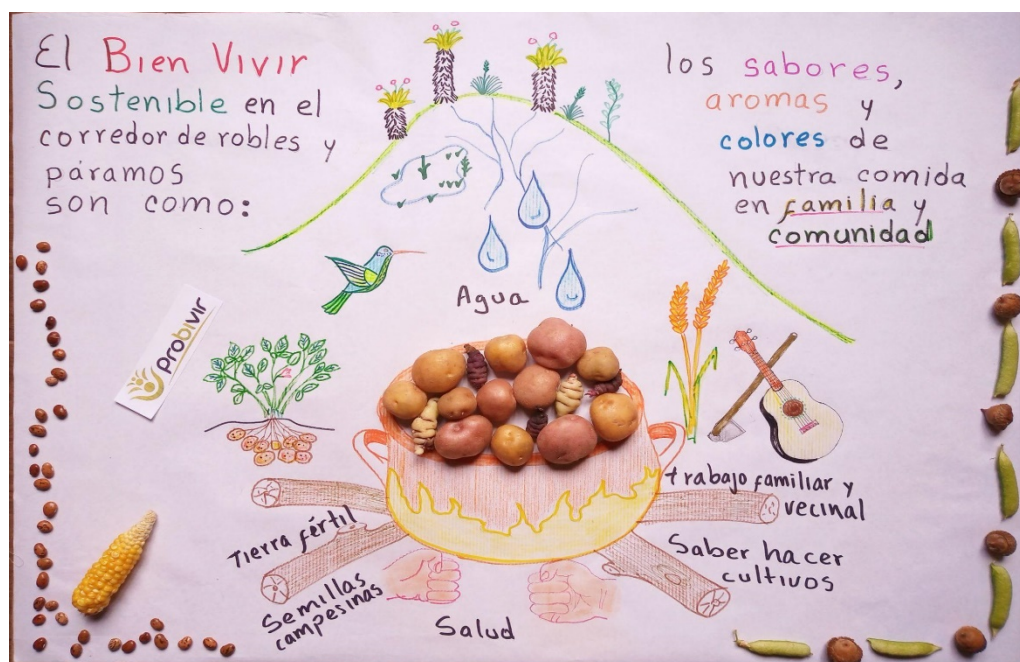 El Bien Vivir
Sostenible en el
corredor de robles y
páramos
son como:
los sabores,
aromas y
colores de
nuestra comida
en familia y
comunidad
Agua
probivir
trabajo familiar y
vecinal
Tierra fértil
Saber hacer
cultivos
Semillas
campesinas
Salud